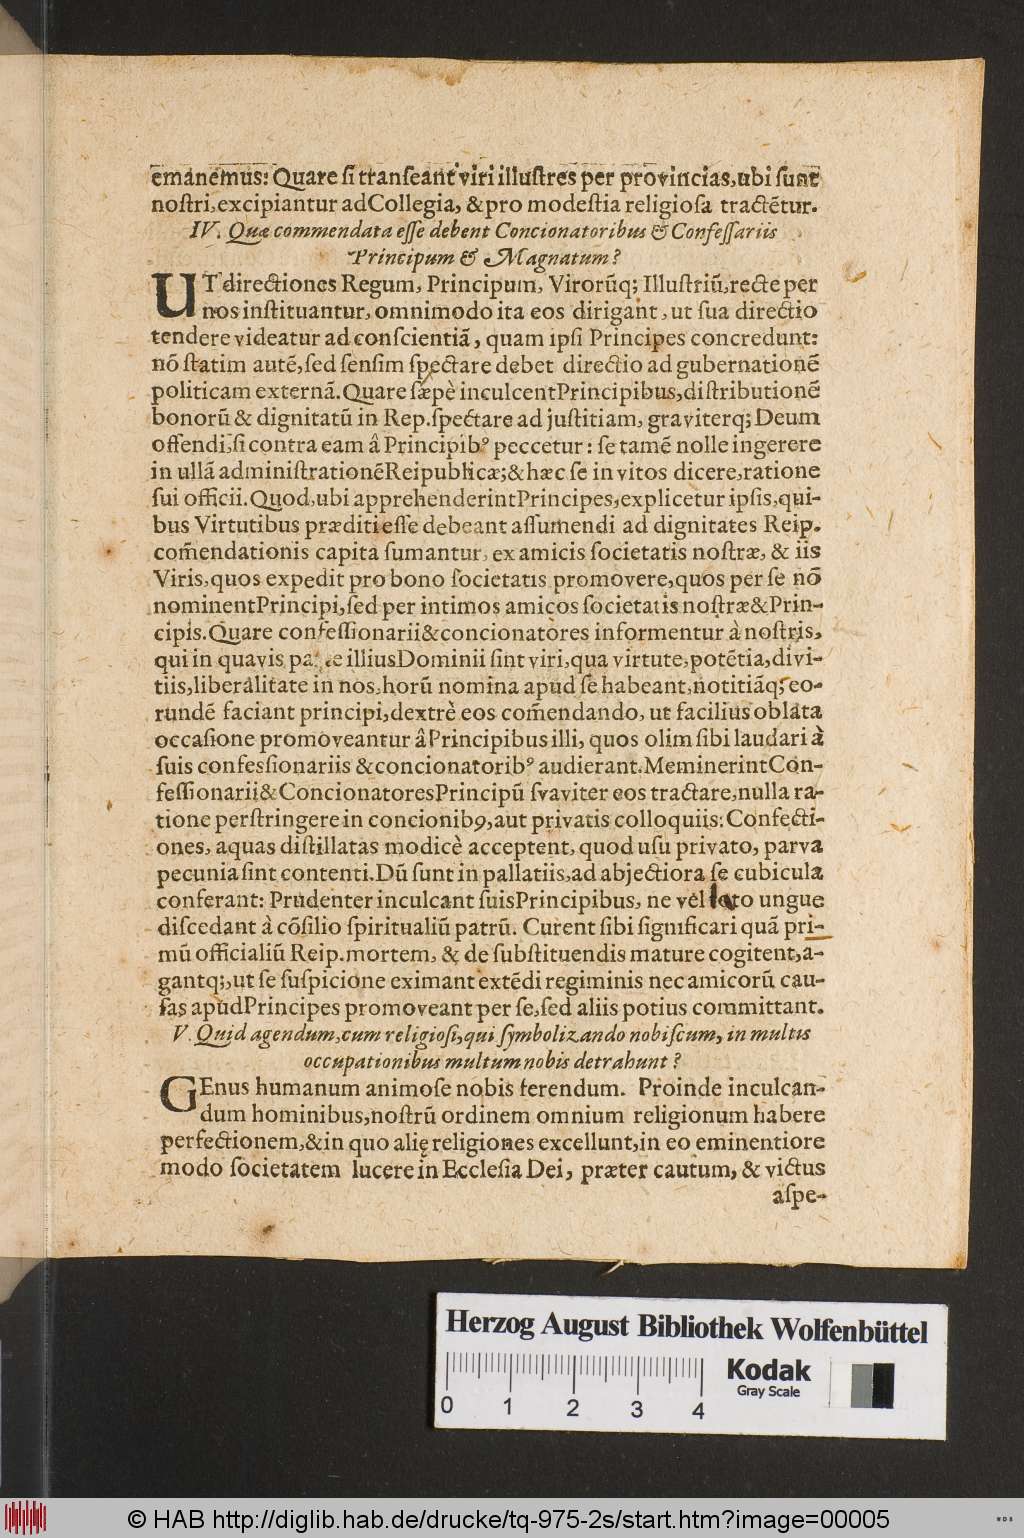 emanemus: Quare ſi tranſeant viri illuſtres per provincias, ubi ſunt
noſtri, excipiantur ad Collegia, & pro modeſtia religioſa tractẽtur.
IV. Quæ commendata eſſe debent Concionatoribus & Confeſſariis
Principum & Magnatum?
UT directiones Regum, Principum, Virorũq; Illuſtriũ, recte per
nos inſtituantur, omnimodo ita eos dirigant, ut ſua directio
tendere videatur ad conſcientiã, quam ipſi Principes concredunt:
nõ ſtatim autẽ, ſed ſenſim ſpectare debet directio ad gubernationẽ
politicam externã. Quare ſæpè inculcent Principibus, diſtributionẽ
bonorũ & dignitatũ in Rep. ſpectare ad juſtitiam, graviterq; Deum
offendi, ſi contra eam â Principibꝰ peccetur: ſe tamẽ nolle ingerere
in ullã adminiſtrationẽ Reipublicæ; & hæc ſe invitos dicere, ratione
ſui officii. Quod, ubi apprehenderint Principes, explicetur ipſis, qui-
bus Virtutibus præditi eſſe debeant aſſumendi ad dignitates Reip.
com̃endationis capita ſumantur, ex amicis ſocietatis noſtræ, & iis
Viris, quos expedit pro bono ſocietatis promovere, quos per ſe nõ
nominent Principi, ſed per intimos amicos ſocietatis noſtræ & Prin-
cipis. Quare confeſſionarii & concionatòres informentur à noſtris,
qui in quavis parte illius Dominii ſint viri, qua virtute, potẽtia, divi-
tiis, liberalitate in nos, horũ nomina apud ſe habeant, notitiãq; eo-
rundẽ faciant principi, dextrè eos com̃endando, ut facilius oblata
occaſione promoveantur â Principibus illi, quos olim ſibi laudari à
ſuis confesſionariis & concionatoribꝰ audierant. Meminerint Con-
feſſionarii & Concionatores Principũ ſvaviter eos tractare, nulla ra-
tione perſtringere in concionibꝰ, aut privatis colloquiis: Confecti-
ones, aquas diſtillatas modicè acceptent, quod uſu privato, parva
pecunia ſint contenti. Dũ ſunt in pallatiis, ad abjectiora ſe cubicula
conferant: Prudenter inculcant ſuis Principibus, ne vel lato ungue
diſcedant à cõſilio ſpiritualiũ patrũ. Curent ſibi ſignificari quã pri-
mũ officialiũ Reip. mortem, & de ſubſtituendis mature cogitent, a-
gantq;, ut ſe ſuſpicione eximant extẽdi regiminis nec amicorũ cau-
ſas apud Principes promoveant per ſe, ſed aliis potius committant.
V. Quid agendum, cum religioſi, qui ſymbolizando nobiſcum, in multis
occupationibus multum nobis detrahunt?
GEnus humanum animoſe nobis ferendum. Proinde inculcan-
dum hominibus, noſtrũ ordinem omnium religionum habere
perfectionem, & in quo alię religiones excellunt, in eo eminentiore
modo ſocietatem lucere in Eccleſia Dei, præter cautum, & victus
aſpe-
Herzog August Bibliothek Wolfenbüttel
Kodak
Gray Scale
0 1 2 3 4
© HAB http://diglib.hab.de/drucke/tq-975-2s/start.htm?image=00005